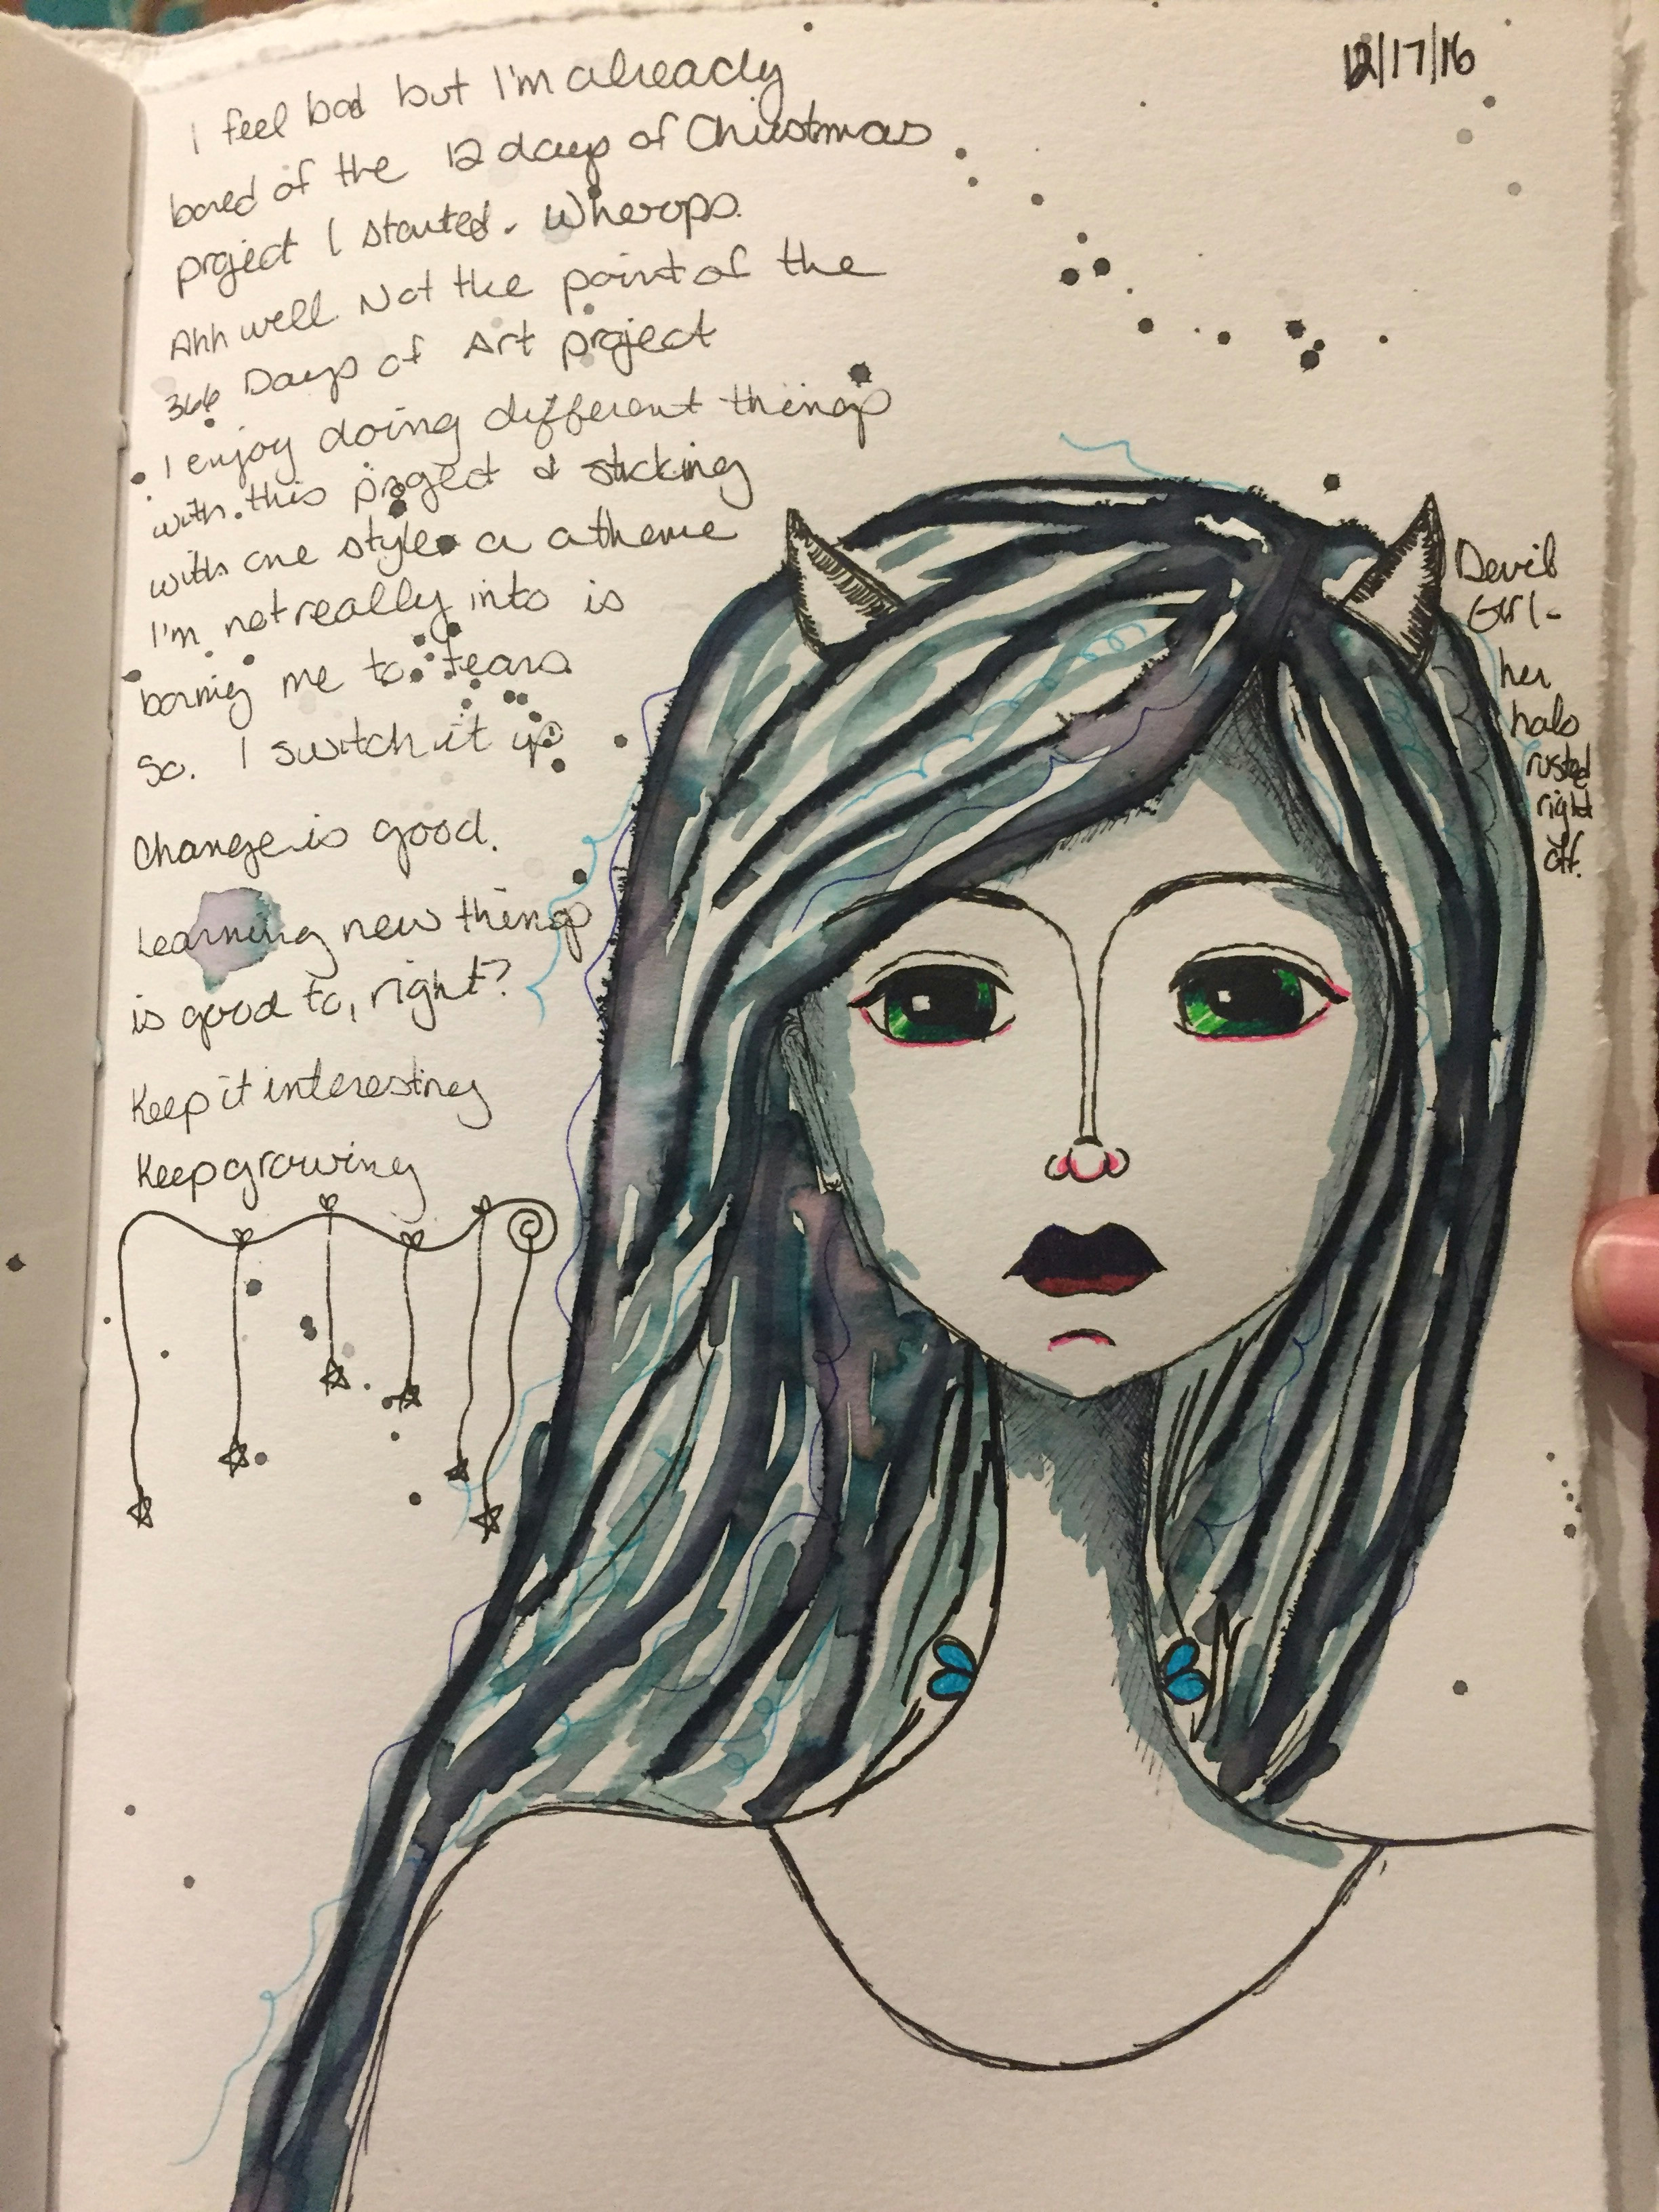 12/17/16
I feel bad but I'm already
bored of the 12 days of Christmas
project I started. Wherops.
Ahh well. Not the point of the
366 Days of Art project
I enjoy doing different things
with this project & sticking
with one style or a theme
I'm not really into is
boring me to tears.
So. I switch it up
Change is good.
Learning new things
is good to, right?
Keep it interesting
Keep growing
Devil
Girl-
her
halo
rusted
right
off.